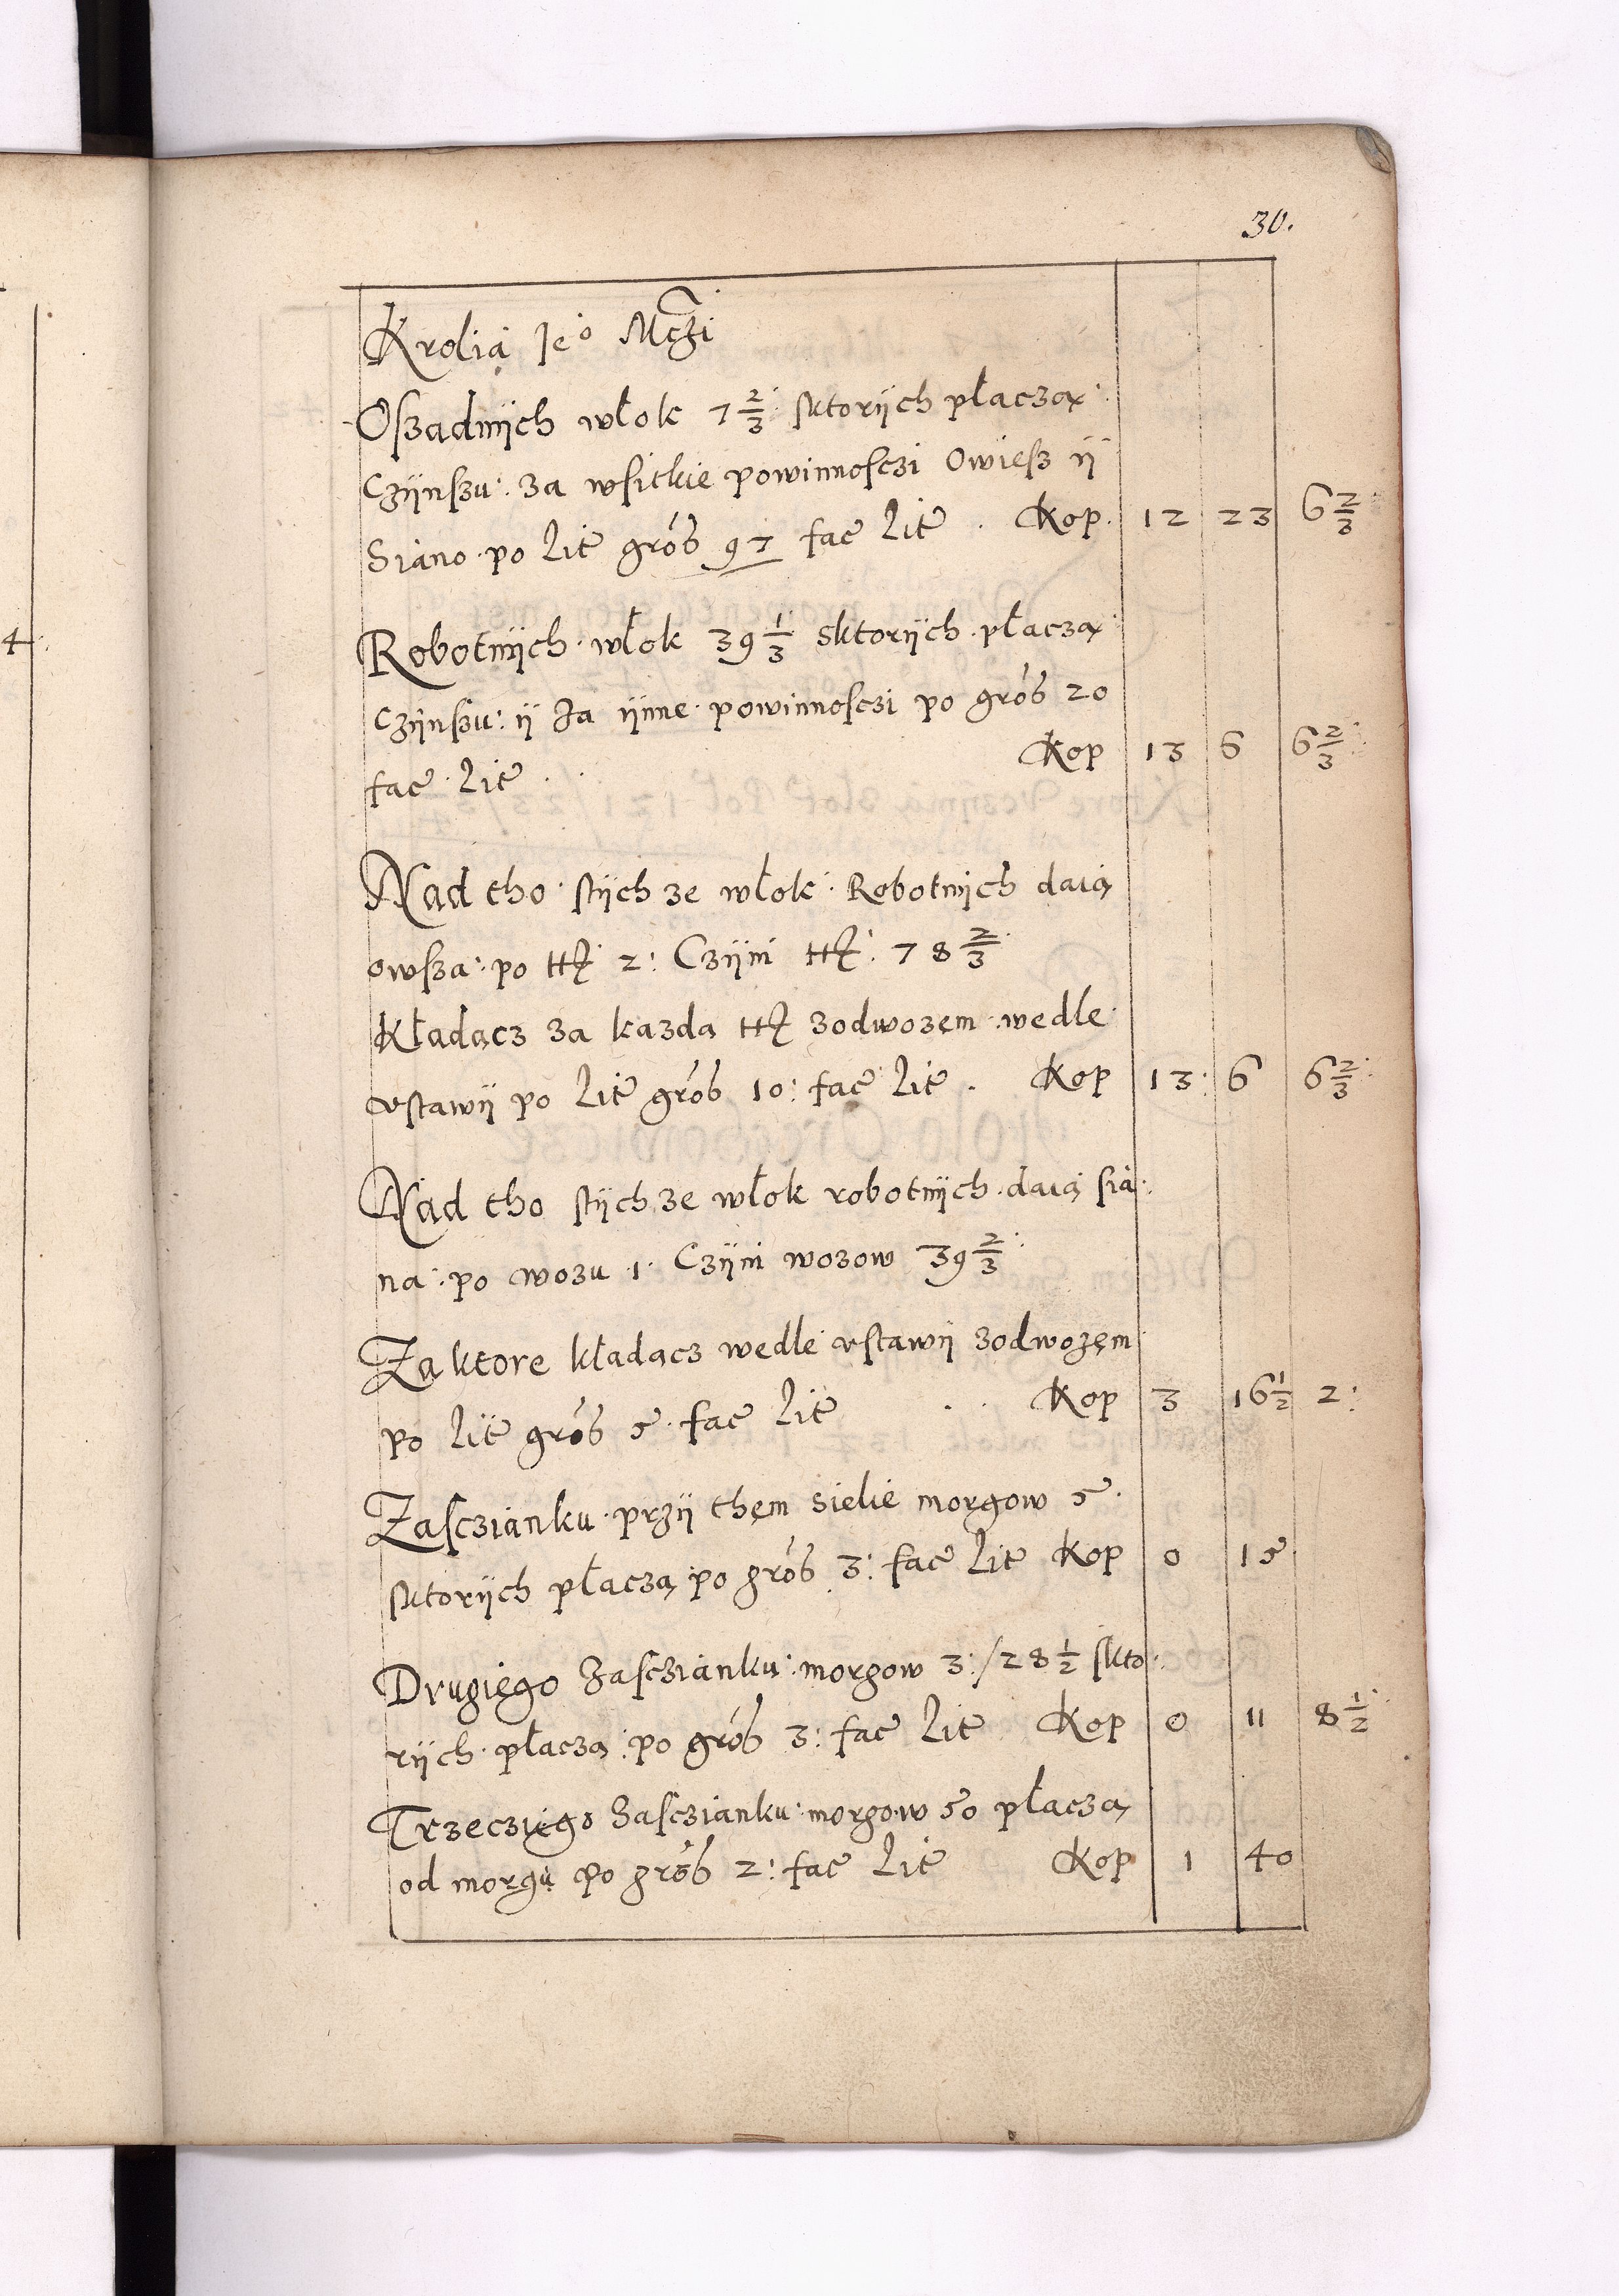 30.
Krolia Je° Mczi
Oszadnÿch włok 7 2/3 sktorÿch płaczą
Czÿnszu: za wsitkie powinnosczi Owiesz ÿ
Siano po lit grós 97 fac lit . Kop. 12 23 6 2/3
Robotnÿch włok 39 1/3 sktorÿch płaczą
Czÿnszu: ÿ Za ÿnne powinnosczi po grós 20
fac lit . . Kop 13 6 6 2/3
Nad tho stÿch ze włok Robotnÿch daią
owsza: po 2: Czÿni 78 2/3
Kładącz za kazdą zodwozem wedle
vstawÿ po lit grós 10: fac lit . Kop 13: 6 6 2/3
Nad tho stÿch ze włok robotnÿch daią sia:
na: po wozu 1. Czÿni wozow 39 2/3
Za ktore kładacz wedle vstawÿ zodwozem
po lit grós 5 fac lit . . Kop 3 16 1/2 2:
Zasczianku przÿ them sielie morgow 5.
sktorÿch płaczą po grós 3: fac lit Kop 0 15
Drugiego Zasczianku: morgow 3:/28 1/2 skto:
rÿch płaczą po grós 3: fac lit Kop 0 11 8 1/2
Trzecziego Zasczianku: morgow 50 płaczą
od morgu po grós 2: fac lit Kop 1 40
4: